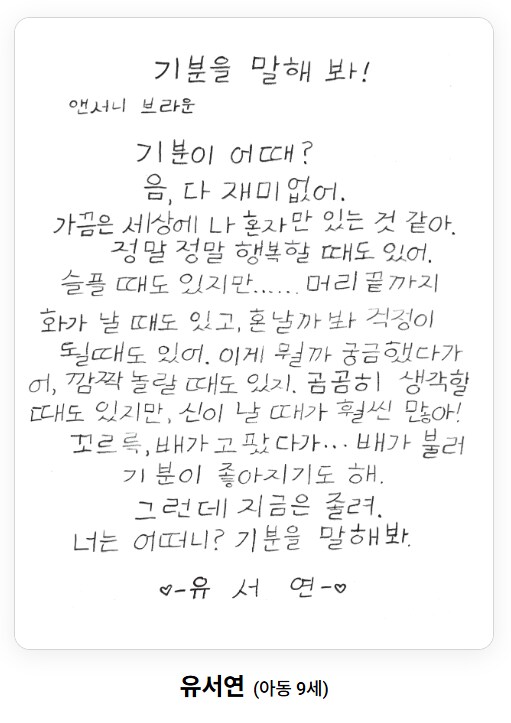 기분을 말해 봐!
앤서니 브라운
기분이 어때?
음, 다 재미없어.
가끔은 세상에 나 혼자만 있는 것 같아.
정말 정말 행복할 때도 있어.
슬플 때도 있지만...... 머리끝까지
화가 날 때도 있고, 혼날까 봐 걱정이
될때도 있어. 이게 뭘까 궁금했다가
어, 깜짝 놀랄 때도 있지. 곰곰히 생각할
때도 있지만, 신이 날 때가 훨씬 많아!
꼬르륵, 배가 고팠다가... 배가 불러
기분이 좋아지기도 해.
그런데 지금은 졸려.
너는 어떠니? 기분을 말해봐.
♡-유 서 연-♡
유서연 (아동 9세)